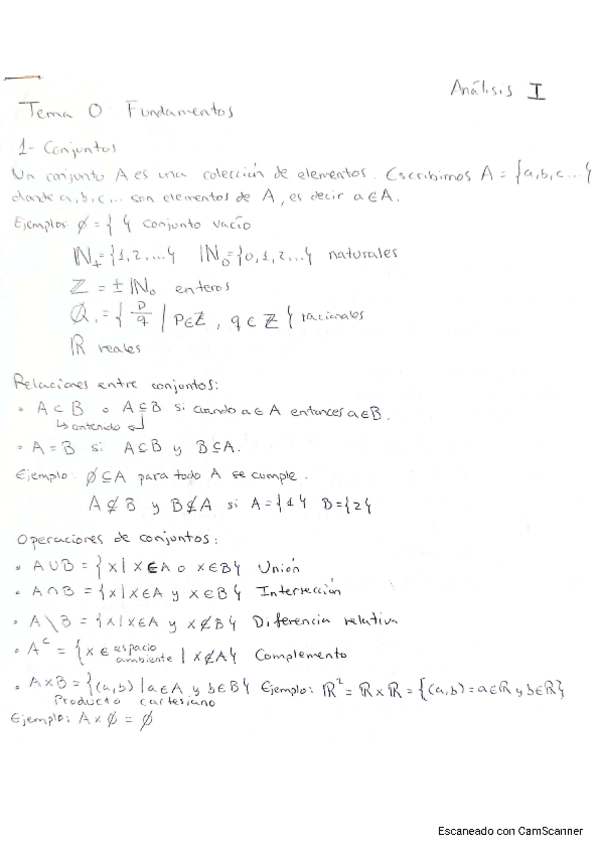 Análisis I
Tema 0 Fundamentos
1- Conjuntos
Un conjunto A es una colección de elementos. Escribimos A = {a,b,c...}
donde a,b,c... son elementos de A, es decir a∈A.
Ejemplos: ∅ = { } conjunto vacío
ℕ₊={1,2,...} ℕ₀={0,1,2...} naturales
ℤ = ±ℕ₀ enteros
ℚ = { p/q | p∈ℤ, q⊂ℤ } racionales
ℝ reales
Relaciones entre conjuntos:
• A⊂B o A⊆B si cuando a∈A entonces a∈B.
↳contenido↲
• A=B si A⊆B y B⊆A.
Ejemplo: ∅⊆A para todo A se cumple.
A⊈B y B⊈A si A={1} B={2}
Operaciones de conjuntos:
• A∪B = {x| x∈A o x∈B} Unión
• A∩B = {x|x∈A y x∈B} Intersección
• A\B = {x|x∈A y x∉B} Diferencia relativa
• Aᶜ = {x∈ espacio ambiente | x∉A} Complemento
• A×B = {(a,b) |a∈A y b∈B} Ejemplo: ℝ² = ℝ×ℝ = {(a,b) = a∈ℝ y b∈ℝ}
Producto cartesiano
Ejemplo: A×∅ = ∅
Escaneado con CamScanner